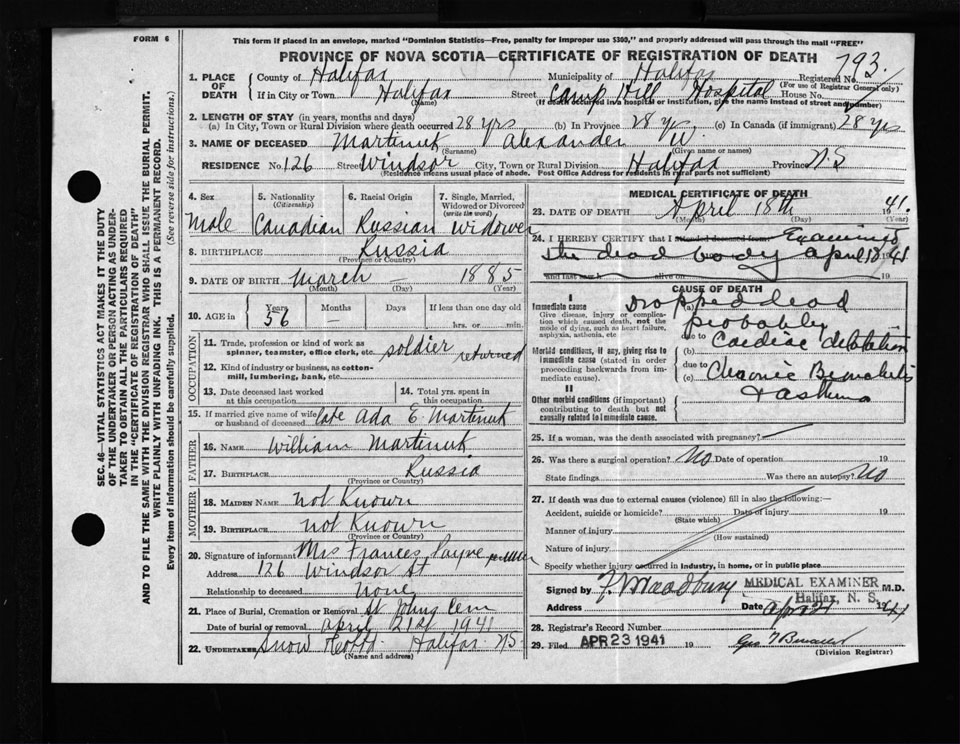 FORM 6
This form if placed in an envelope, marked "Dominion Statistics—Free, penalty for improper use $300," and properly addressed will pass through the mail "FREE"
PROVINCE OF NOVA SCOTIA—CERTIFICATE OF REGISTRATION OF DEATH
793.
1. PLACE OF DEATH
County of Halifax Municipality of Halifax Registered No.
(For use of Registrar General only)
If in City or Town Halifax Street Camp Hill Hospital House No.
(Name) (If death occurred in a hospital or institution, give the name instead of street and number)
2. LENGTH OF STAY (in years, months and days)
(a) In City, Town or Rural Division where death occurred 28 yrs (b) In Province 28 yrs (c) In Canada (if immigrant) 28 yrs
3. NAME OF DECEASED Martinuk Alexander W.
(Surname) (Given name or names)
RESIDENCE No 126 Street Windsor City, Town or Rural Division Halifax Province N.S
(Residence means usual place of abode. Post Office Address for residents in rural parts not sufficient)
4. Sex
Male
5. Nationality
(Citizenship)
Canadian
6. Racial Origin
Russian
7. Single, Married, Widowed or Divorced
(write the word)
Widower
8. BIRTHPLACE Russia
(Province or Country)
9. DATE OF BIRTH March 1885
(Month) (Day) (Year)
10. AGE in
Years
56
Months
—
Days
If less than one day old
hrs. or min.
OCCUPATION
11. Trade, profession or kind of work as spinner, teamster, office clerk, etc. soldier returned
12. Kind of industry or business, as cotton-mill, lumbering, bank, etc.
13. Date deceased last worked at this occupation
14. Total yrs. spent in this occupation
15. If married give name of wife or husband of deceased late Ada E. Martinuk
FATHER
16. NAME William Martinuk
17. BIRTHPLACE Russia
(Province or Country)
MOTHER
18. MAIDEN NAME not Known
19. BIRTHPLACE not Known
(Province or Country)
20. Signature of informant Mrs Frances Payne
Address 126 Windsor St
Relationship to deceased none
21. Place of Burial, Cremation or Removal St Johns Cem
Date of burial or removal April 21st 1941
22. UNDERTAKER Snow Halifax NS
(Name and address)
MEDICAL CERTIFICATE OF DEATH
23. DATE OF DEATH April 18th 1941.
(Month) (Day) (Year)
24. I HEREBY CERTIFY that I attended deceased from Examined
the dead body April 18 41
and last saw h alive on
CAUSE OF DEATH
I
Immediate cause
Give disease, injury or complication which caused death, not the mode of dying, such as heart failure, asphyxia, asthenia, etc
Morbid conditions, if any, giving rise to immediate cause (stated in order proceeding backwards from immediate cause).
II
Other morbid conditions (if important) contributing to death but not causally related to immediate cause.
(a) Dropped dead
probably
due to Cardiac dilatation
(b)
due to
(c) Chronic Bronchitis
+ asthma
25. If a woman, was the death associated with pregnancy?
26. Was there a surgical operation? No Date of operation 19
State findings Was there an autopsy? No
27. If death was due to external causes (violence) fill in also the following:—
Accident, suicide or homicide? Date of injury 19
(State which)
Manner of injury
(How sustained)
Nature of injury
Specify whether injury occurred in industry, in home, or in public place
Signed by M.D.
MEDICAL EXAMINER
Halifax, N. S.
Address Date Apr 21 1941
28. Registrar's Record Number
29. Filed APR 23 1941 19
(Division Registrar)
SEC. 46—VITAL STATISTICS ACT MAKES IT THE DUTY
OF THE UNDERTAKER OR PERSON ACTING AS UNDER-
TAKER TO OBTAIN ALL THE PARTICULARS REQUIRED
IN THE "CERTIFICATE OF REGISTRATION OF DEATH"
AND TO FILE THE SAME WITH THE DIVISION REGISTRAR WHO SHALL ISSUE THE BURIAL PERMIT.
WRITE PLAINLY WITH UNFADING INK. THIS IS A PERMANENT RECORD.
Every item of information should be carefully supplied. (See reverse side for instructions.)